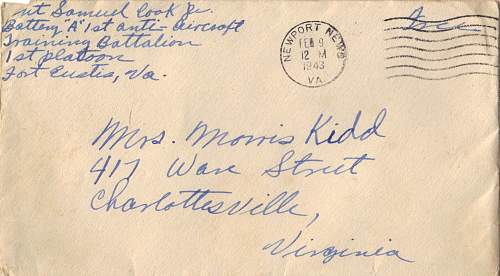 Samuel Cook Jr.
Battery "A" 1st anti-aircraft
Training Battalion
1st platoon
Fort Eustis, Va.
NEWPORT NEWS
FEB 9
12 M
1943
VA.
Free
Mrs. Morris Kidd
417 Ware Street
Charlottesville,
Virginia